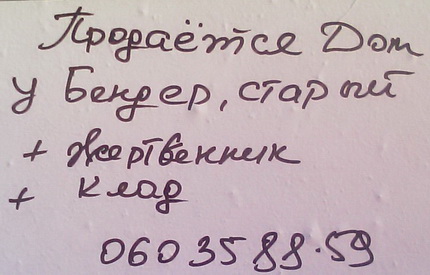 Продаётся Дом
у Бендер, старый
+ жертвенник
+ клад
060 35 88.59